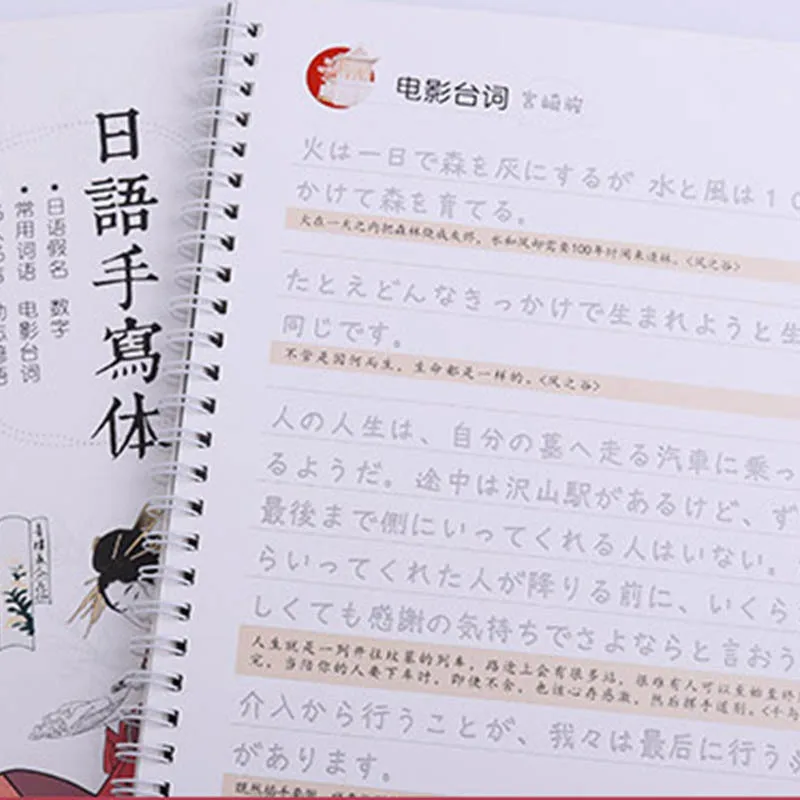 日語手寫体
•日语假名 数字
•常用词语 电影台词
电影台词 宫崎骏
火は一日で森を灰にするが 水と風は１０
かけて森を育てる。
火在一天之内把森林烧成灰烬，水和风却需要100年时间来造林。《风之谷》
たとえどんなきっかけで生まれようと生
同じです。
不管是因何而生，生命都是一样的。《风之谷》
人の人生は、自分の墓へ走る汽車に乗っ
るようだ。途中は沢山駅があるけど、ず
最後まで側にいってくれる人はいない。
らいってくれた人が降りる前に、いくら
しくても感謝の気持ちでさよならと言おう
人生就是一列开往坟墓的列车，路途上会有很多站，很难有人可以至始至终
完，当陪你的人要下车时，即使不舍，也该心存感激，然后挥手道别。《千与
介入から行うことが、我々は最后に行う
があります。